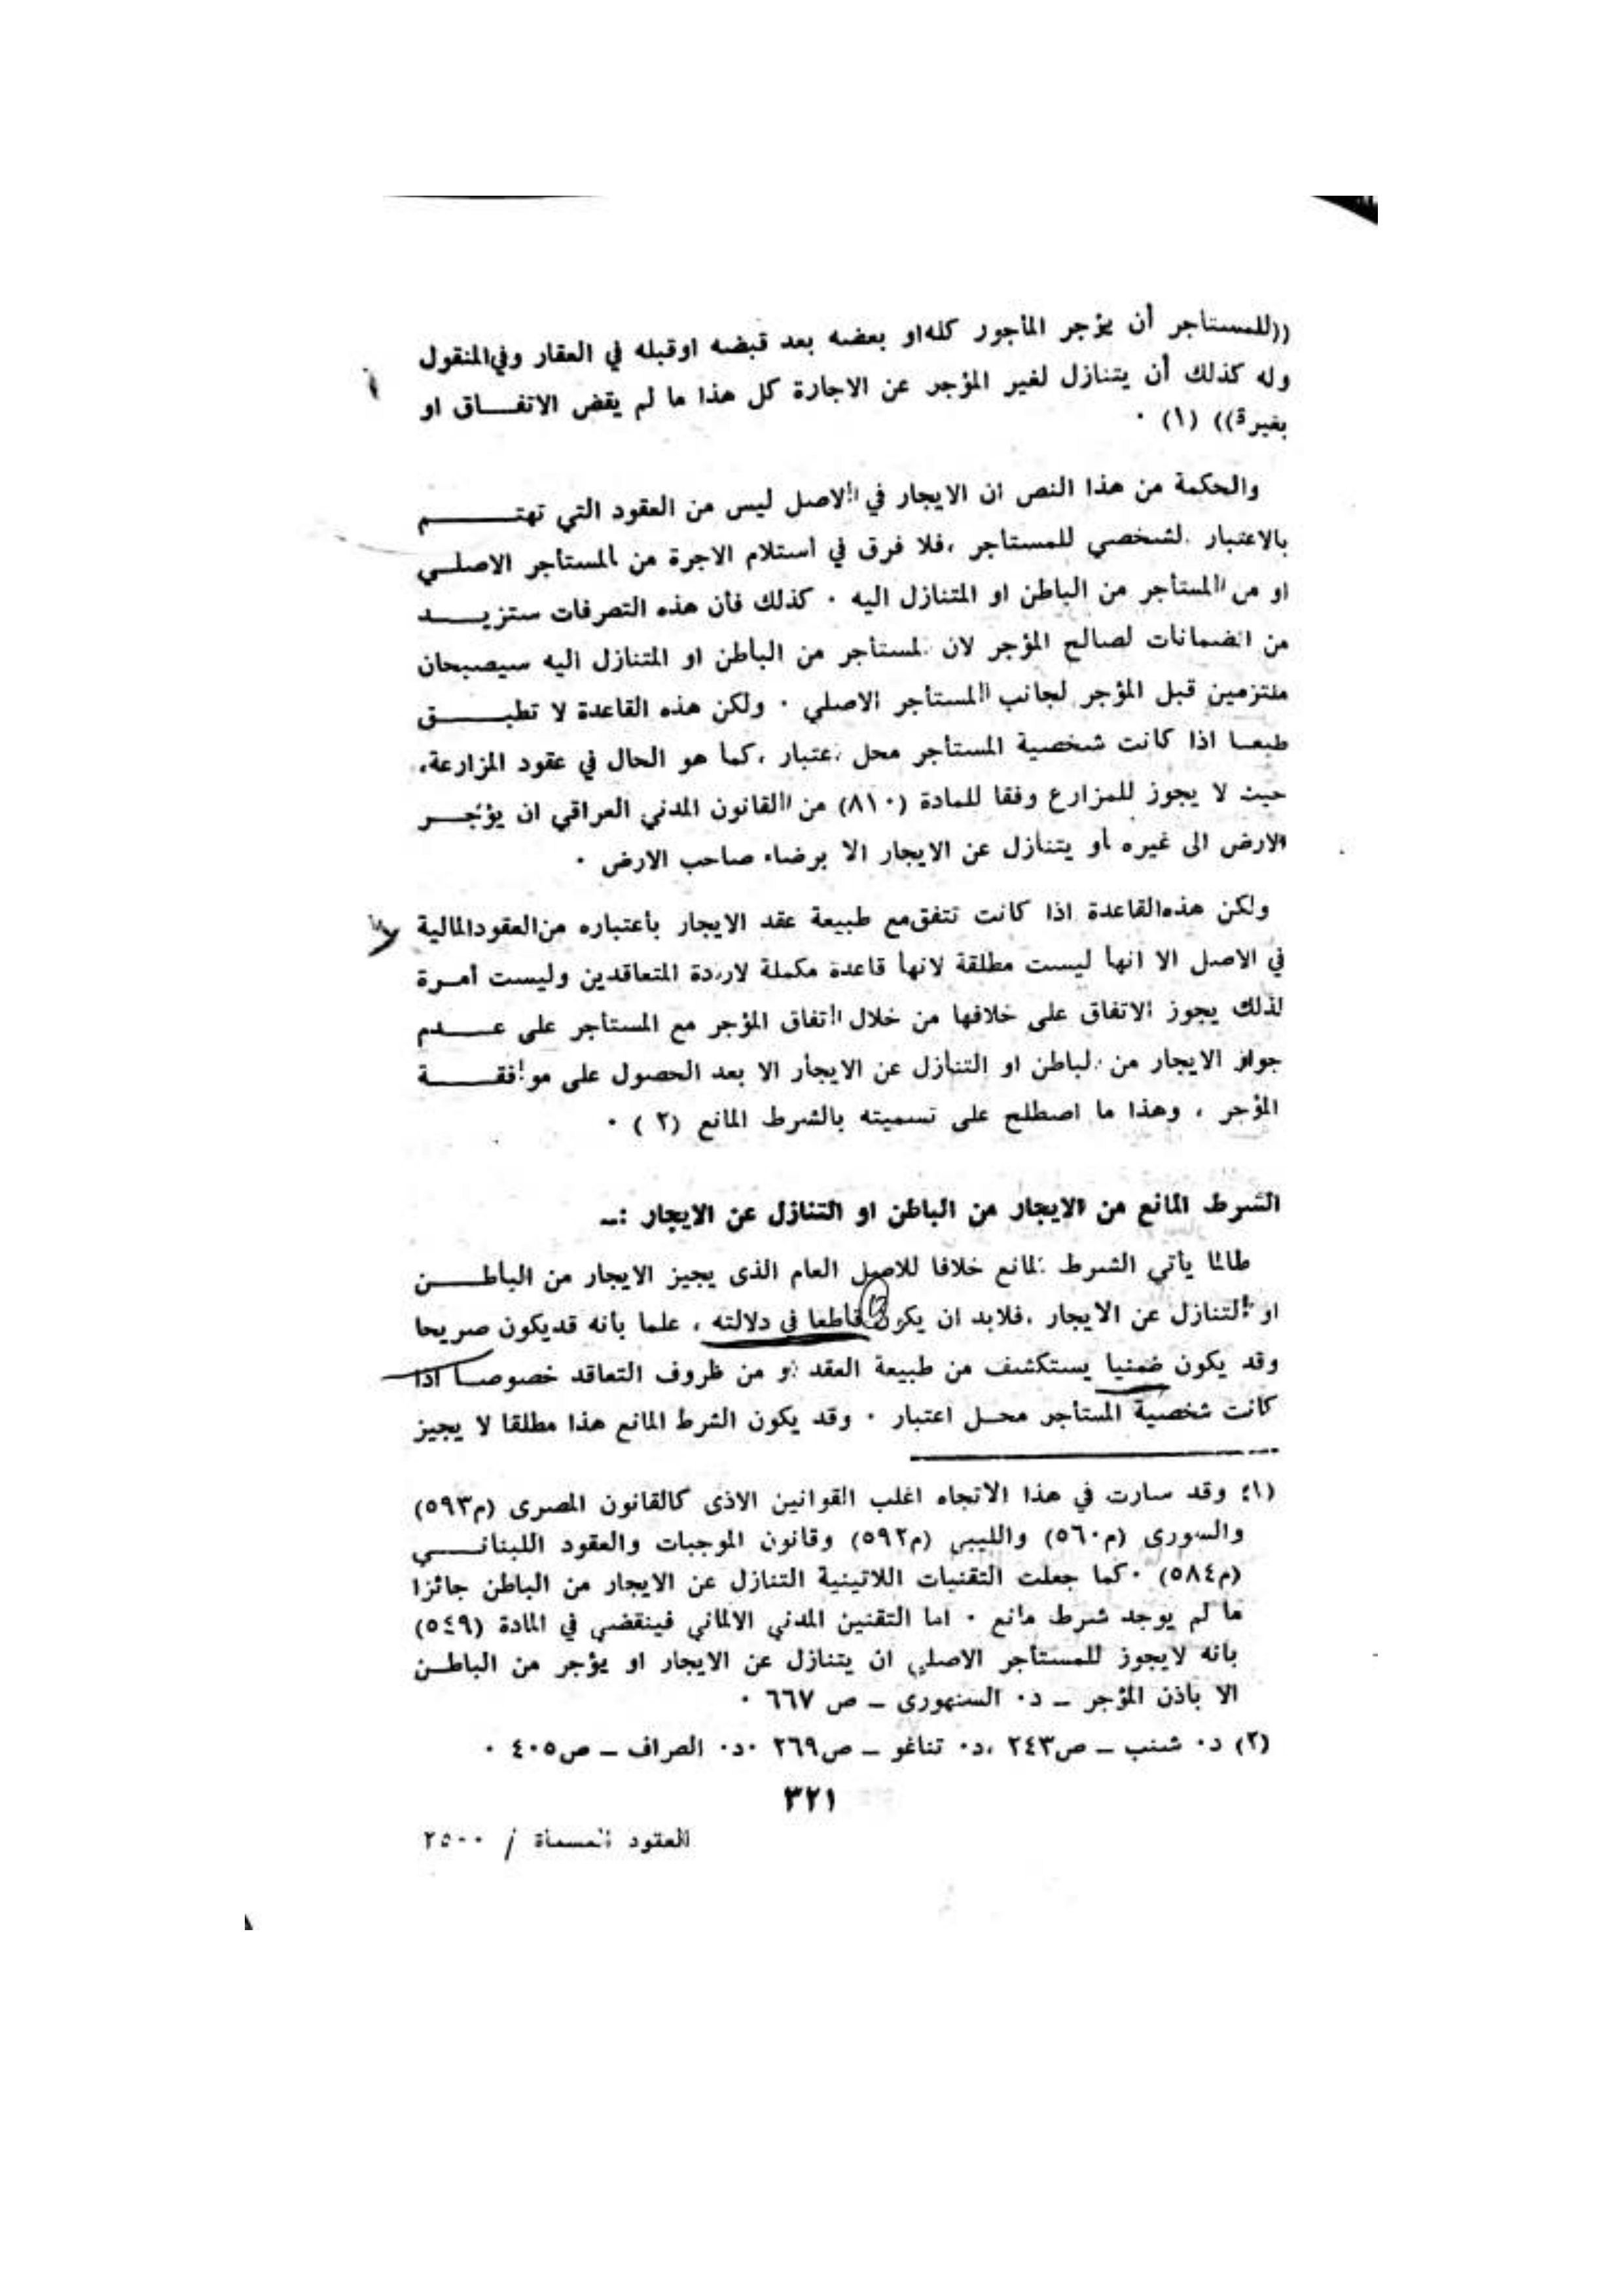 ((للمستاجر أن يؤجر المأجور كله او بعضه بعد قبضه او قبله في العقار وفي المنقول
وله كذلك أن يتنازل لغير المؤجر عن الاجارة كل هذا ما لم يقض الاتفـــاق او
بغيرة)) (١) ٠
والحكمة من هذا النص ان الايجار في الاصل ليس من العقود التي تهتـــم
بالاعتبار الشخصي للمستاجر ،فلا فرق في استلام الاجرة من المستأجر الاصلـي
او من المستأجر من الباطن او المتنازل اليه ٠ كذلك فأن هذه التصرفات ستزيـــد
من الضمانات لصالح المؤجر لان المستأجر من الباطن او المتنازل اليه سيصبحان
ملتزمين قبل المؤجر لجانب المستأجر الاصلي ٠ ولكن هذه القاعدة لا تطبـــق
طبعـا اذا كانت شخصية المستأجر محل اعتبار ،كما هو الحال في عقود المزارعة،
حيث لا يجوز للمزارع وفقا للمادة (٨١٠) من القانون المدني العراقي ان يؤجـــر
الارض الى غيره أو يتنازل عن الايجار الا برضاء صاحب الارض ٠
ولكن هذه القاعدة اذا كانت تتفق مع طبيعة عقد الايجار بأعتباره من العقود المالية
في الاصل الا انها ليست مطلقة لانها قاعدة مكملة لارادة المتعاقدين وليست أمـرة
لذلك يجوز الاتفاق على خلافها من خلال اتفاق المؤجر مع المستأجر على عـــدم
جواز الايجار من الباطن او التنازل عن الايجار الا بعد الحصول على موافقـــة
المؤجر ، وهذا ما اصطلح على تسميته بالشرط المانع (٢) ٠
الشرط المانع من الايجار من الباطن او التنازل عن الايجار :ــ
طالما يأتي الشرط المانع خلافا للاصل العام الذى يجيز الايجار من الباطـــن
او التنازل عن الايجار ،فلابد ان يكون قاطعا في دلالته ، علما بأنه قد يكون صريحا
وقد يكون ضمنيا يستكشف من طبيعة العقد أو من ظروف التعاقد خصوصـا اذا
كانت شخصية المستأجر محـل اعتبار ٠ وقد يكون الشرط المانع هذا مطلقا لا يجيز
(١) وقد سارت في هذا الاتجاه اغلب القوانين الاذى كالقانون المصرى (م٥٩٣)
والسورى (م٥٦٠) والليبي (م٥٩٢) وقانون الموجبات والعقود اللبنانـــي
(م٥٨٤) ٠كما جعلت التقنيات اللاتينية التنازل عن الايجار من الباطن جائزا
ما لم يوجد شرط مانع ٠ اما التقنين المدني الالماني فينقضي في المادة (٥٤٩)
بانه لايجوز للمستأجر الاصلي ان يتنازل عن الايجار او يؤجر من الباطـن
الا باذن المؤجر ــ د٠ السنهورى ــ ص ٦٦٧ ٠
(٢) د٠ شنب ــ ص٢٤٣ ،د٠ تناغو ــ ص٢٦٩ ٠د٠ الصراف ــ ص٤٠٥ ٠
٣٢١
العقود المسماة / ٢٥٠٠